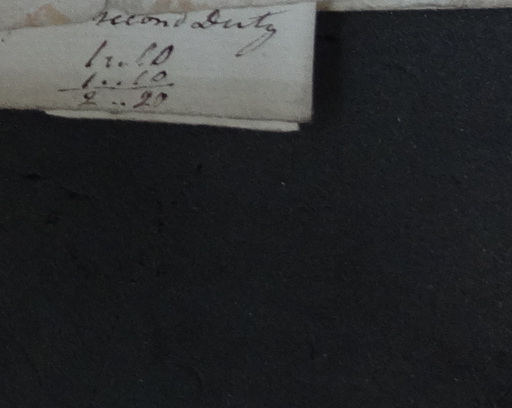 second Duty
1 .. 10
1 .. 10
2 .. 20